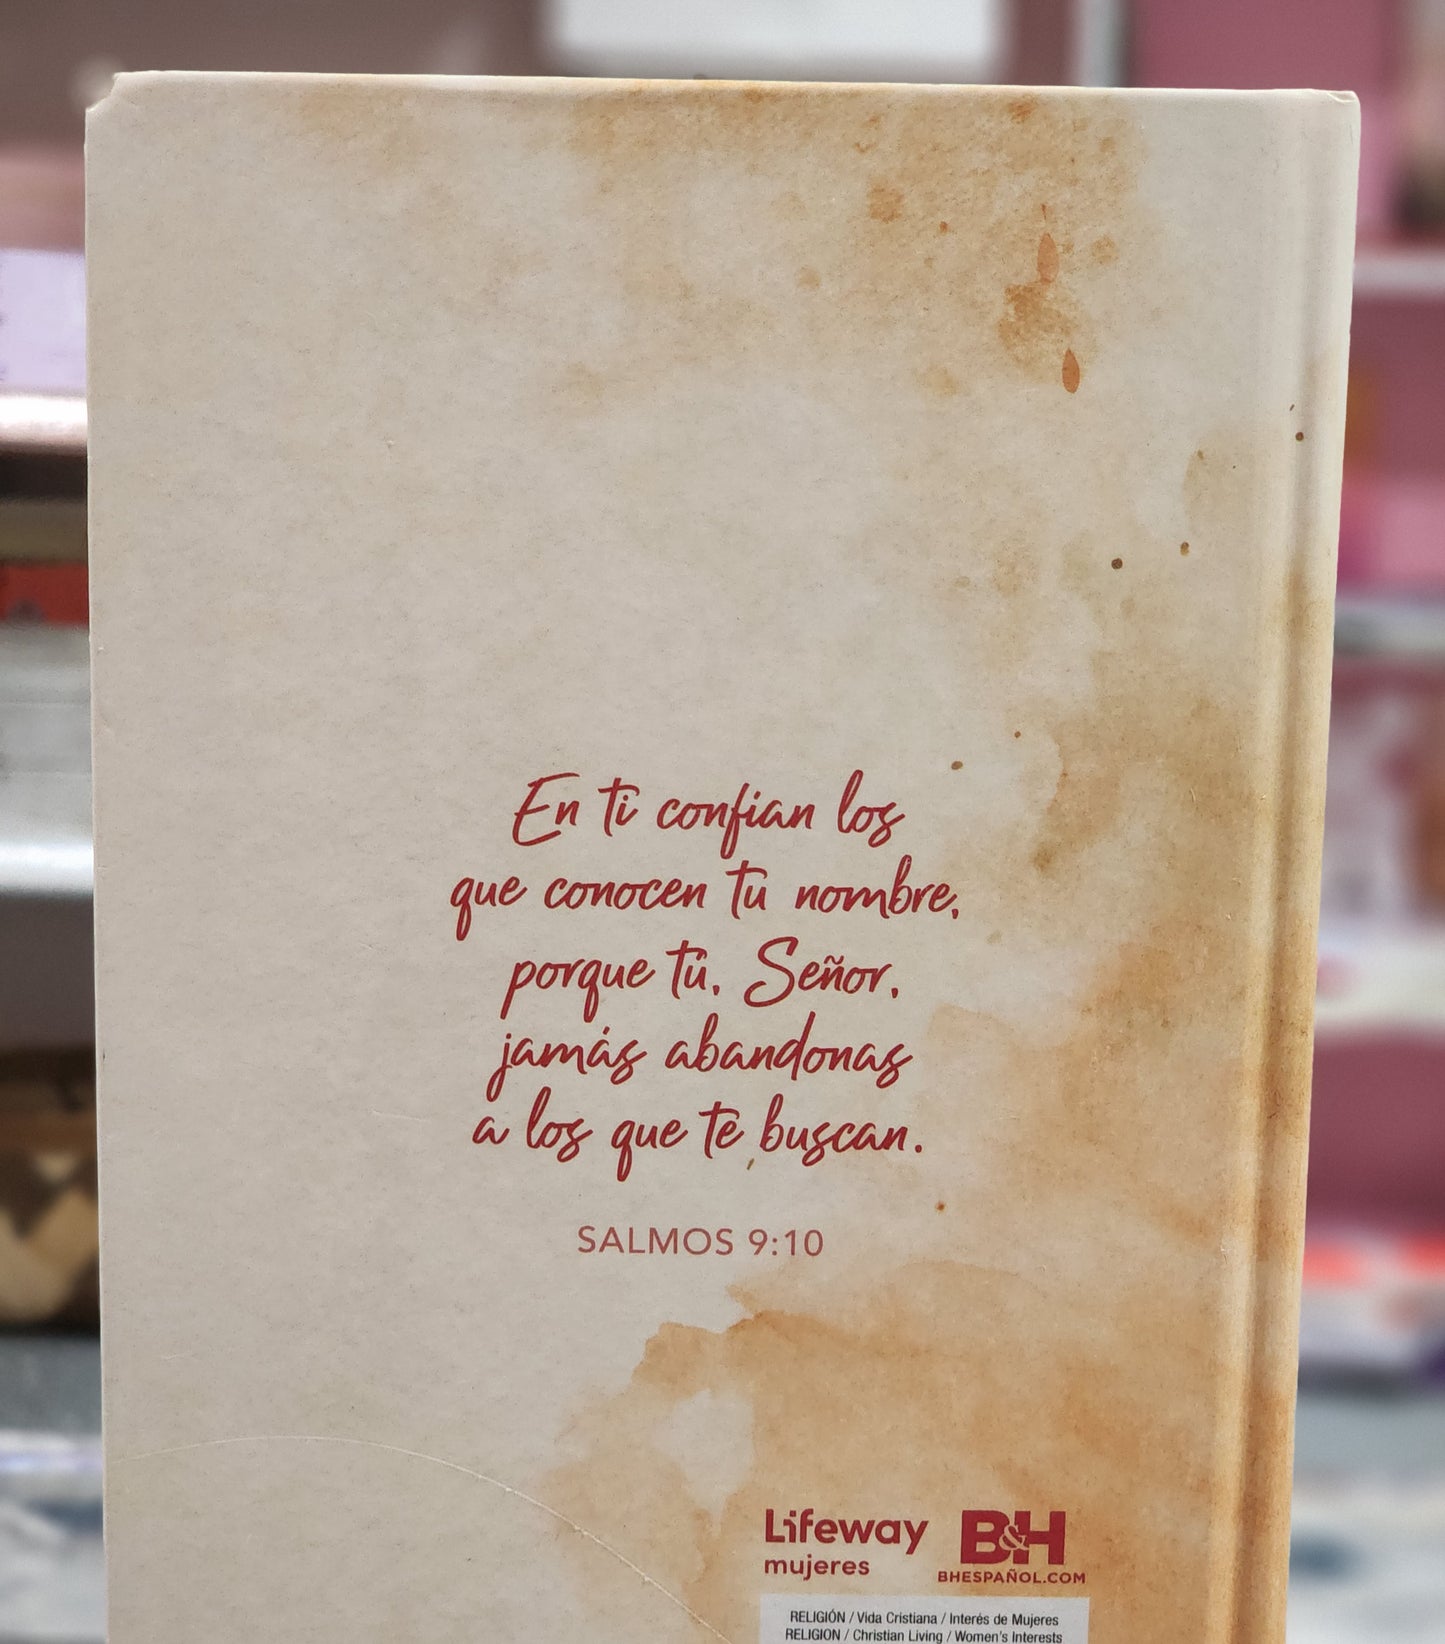 En ti confían los
que conocen tu nombre,
porque tú, Señor,
jamás abandonas
a los que te buscan.
SALMOS 9:10
Lifeway
mujeres
B&H
BHESPAÑOL.COM
RELIGIÓN / Vida Cristiana / Interés de Mujeres
RELIGION / Christian Living / Women's Interests